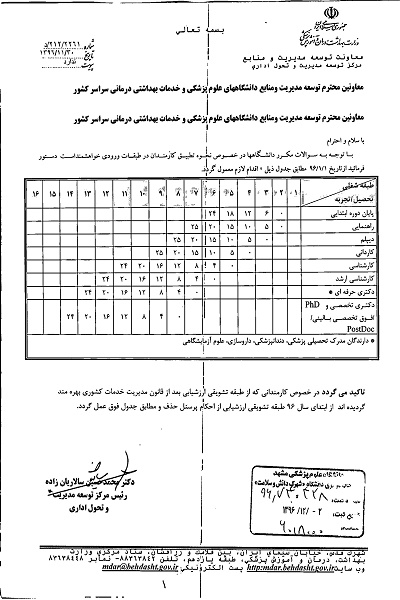 بسمه تعالی
شماره ۵/۲۱۲/۲۲۶۱
تاریخ ۱۳۹۶/۱۱/۳۰
پیوست
جمهوری اسلامی ایران
وزارت بهداشت، درمان و آموزش پزشکی
معاونت توسعه مدیریت و منابع
مرکز توسعه مدیریت و تحول اداری
معاونین محترم توسعه مدیریت ومنابع دانشگاههای علوم پزشکی و خدمات بهداشتی درمانی سراسر کشور
معاونین محترم توسعه مدیریت ومنابع دانشگاههای علوم پزشکی و خدمات بهداشتی درمانی سراسر کشور
با سلام و احترام
با توجه به سوالات مکرر دانشگاهها در خصوص نحوه تطبیق کارمندان در طبقات ورودی خواهشمنداست دستور
فرمائید ازتاریخ ۹۶/۱/۱ مطابق جدول ذیل اقدام لازم معمول گردد.
طبقه شغلی ۱ ۲ ۳ ۴ ۵ ۶ ۷ ۸ ۹ ۱۰ ۱۱ ۱۲ ۱۳ ۱۴ ۱۵ ۱۶
تحصیل/تجربه
پایان دوره ابتدایی ۰ ۶ ۱۲ ۱۸ ۲۴
راهنمایی ۰ ۵ ۱۰ ۱۵ ۲۰ ۲۵
دیپلم ۰ ۵ ۱۰ ۱۵ ۲۰ ۲۵
کاردانی ۰ ۵ ۱۰ ۱۵ ۲۰ ۲۵
کارشناسی ۰ ۴ ۸ ۱۲ ۱۶ ۲۰ ۲۴
کارشناسی ارشد ۰ ۴ ۸ ۱۲ ۱۶ ۲۰ ۲۴
دکتری حرفه ای * ۰ ۴ ۸ ۱۲ ۱۶ ۲۰ ۲۴
دکتری تخصصی و PhD
(فوق تخصصی بالینی) ۰ ۴ ۸ ۱۲ ۱۶ ۲۰ ۲۴
PostDoc
* دارندگان مدرک تحصیلی پزشکی، دندانپزشکی، داروسازی، علوم آزمایشگاهی
تاکید می گردد در خصوص کارمندانی که از طبقه تشویقی ارزشیابی بعد از قانون مدیریت خدمات کشوری بهره مند
گردیده اند از ابتدای سال ۹۶ طبقه تشویقی ارزشیابی از احکام پرسنل حذف و مطابق جدول فوق عمل گردد.
دکتر محمدحسین سالاریان زاده
رئیس مرکز توسعه مدیریت
و تحول اداری
دانشگاه علوم پزشکی مشهد
دانشگاه «شهرک دانش و سلامت»
۱۳۹۶/۱۲/۰۲
شهرک قدس، خیابان سیمای ایران، بین فلامک و زرافشان، ستاد مرکزی وزارت
بهداشت، درمان و آموزش پزشکی، طبقه یازدهم، تلفن ۸۸۳۶۳۸۴۰- نمابر ۸۳۶۳۸۴۴۸
وب سایت http:mdar.behdasht.gov.ir پست الکترونیکی mdar@behdasht.gov.ir
۱